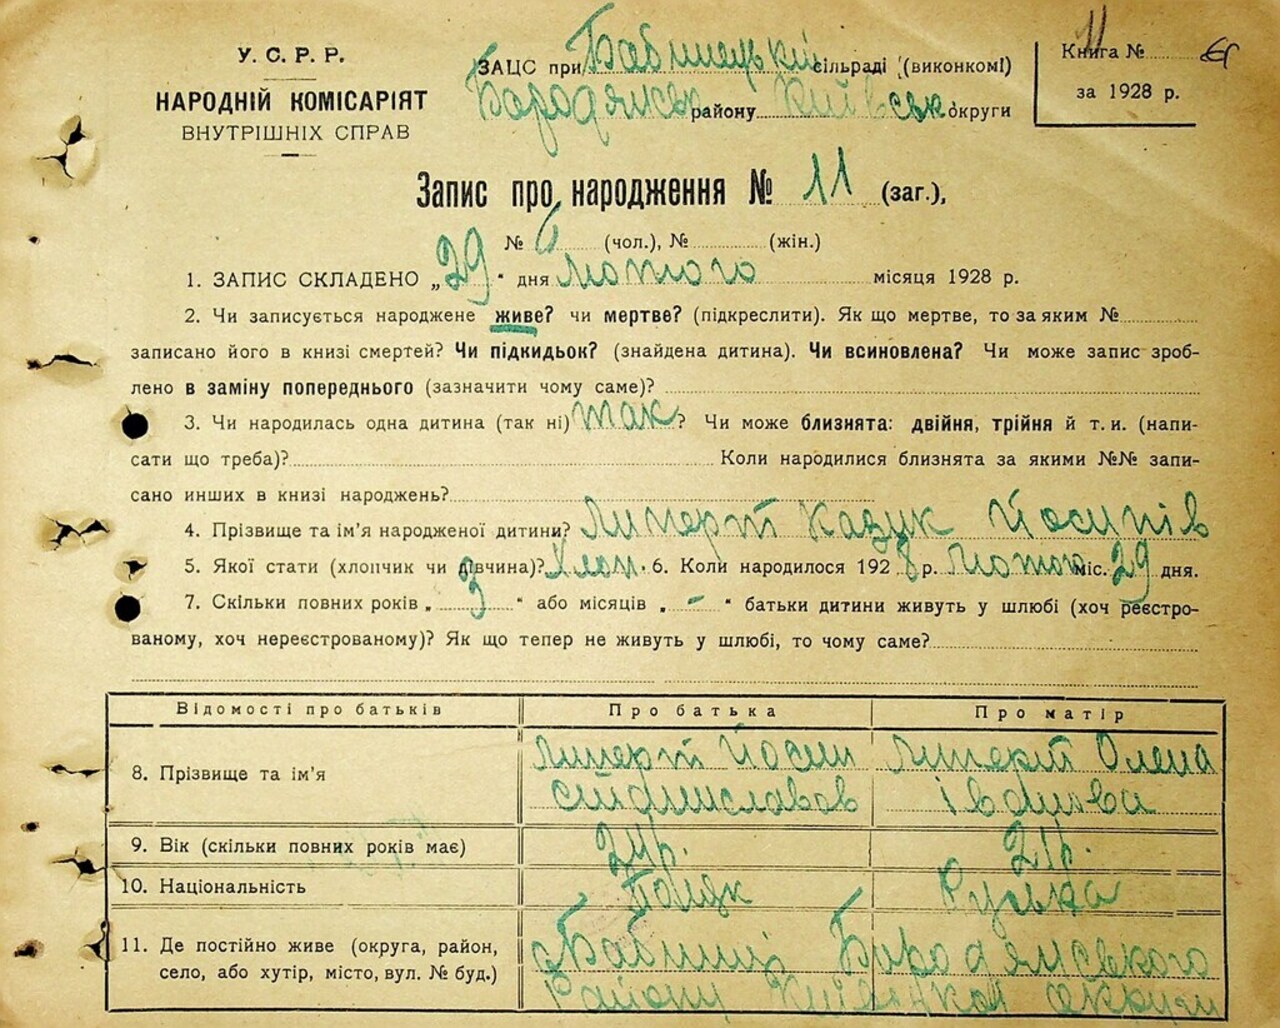 У. С. Р. Р.
НАРОДНІЙ КОМІСАРІЯТ
ВНУТРІШНІХ СПРАВ
ЗАЦС при Бабинецькій сільраді (виконкомі)
Бородянськ району Київськ округи
Книга №
за 1928 р.
11
Запис про народження № 11 (заг.),
№ 6 (чол.), № (жін.)
1. ЗАПИС СКЛАДЕНО „29" дня Лютого місяця 1928 р.
2. Чи записується народжене живе? чи мертве? (підкреслити). Як що мертве, то за яким №
записано його в книзі смертей? Чи підкидьок? (знайдена дитина). Чи всиновлена? Чи може запис зроб-
лено в заміну попереднього (зазначити чому саме)?
3. Чи народилась одна дитина (так ні) так? Чи може близнята: двійня, трійня й т. и. (напи-
сати що треба)? Коли народилися близнята за якими №№ запи-
сано инших в книзі народжень?
4. Прізвище та ім'я народженої дитини? Липерт Казик Йосипів
5. Якої стати (хлопчик чи дівчина)? Хлоп. 6. Коли народилося 1928 р. Лютого міс. 29 дня.
7. Скільки повних років „ 3 " або місяців „ - " батьки дитини живуть у шлюбі (хоч реєстро-
ваному, хоч нереєстрованому)? Як що тепер не живуть у шлюбі, то чому саме?
Відомості про батьків Про батька Про матір
8. Прізвище та ім'я Липерт Йосип Липерт Олена
Станиславов Іванова
9. Вік (скільки повних років має) 24р. 21р.
10. Національність Поляк Руська
11. Де постійно живе (округа, район,
село, або хутір, місто, вул. № буд.)
с Бабинці Бородянського
Району Київської округи